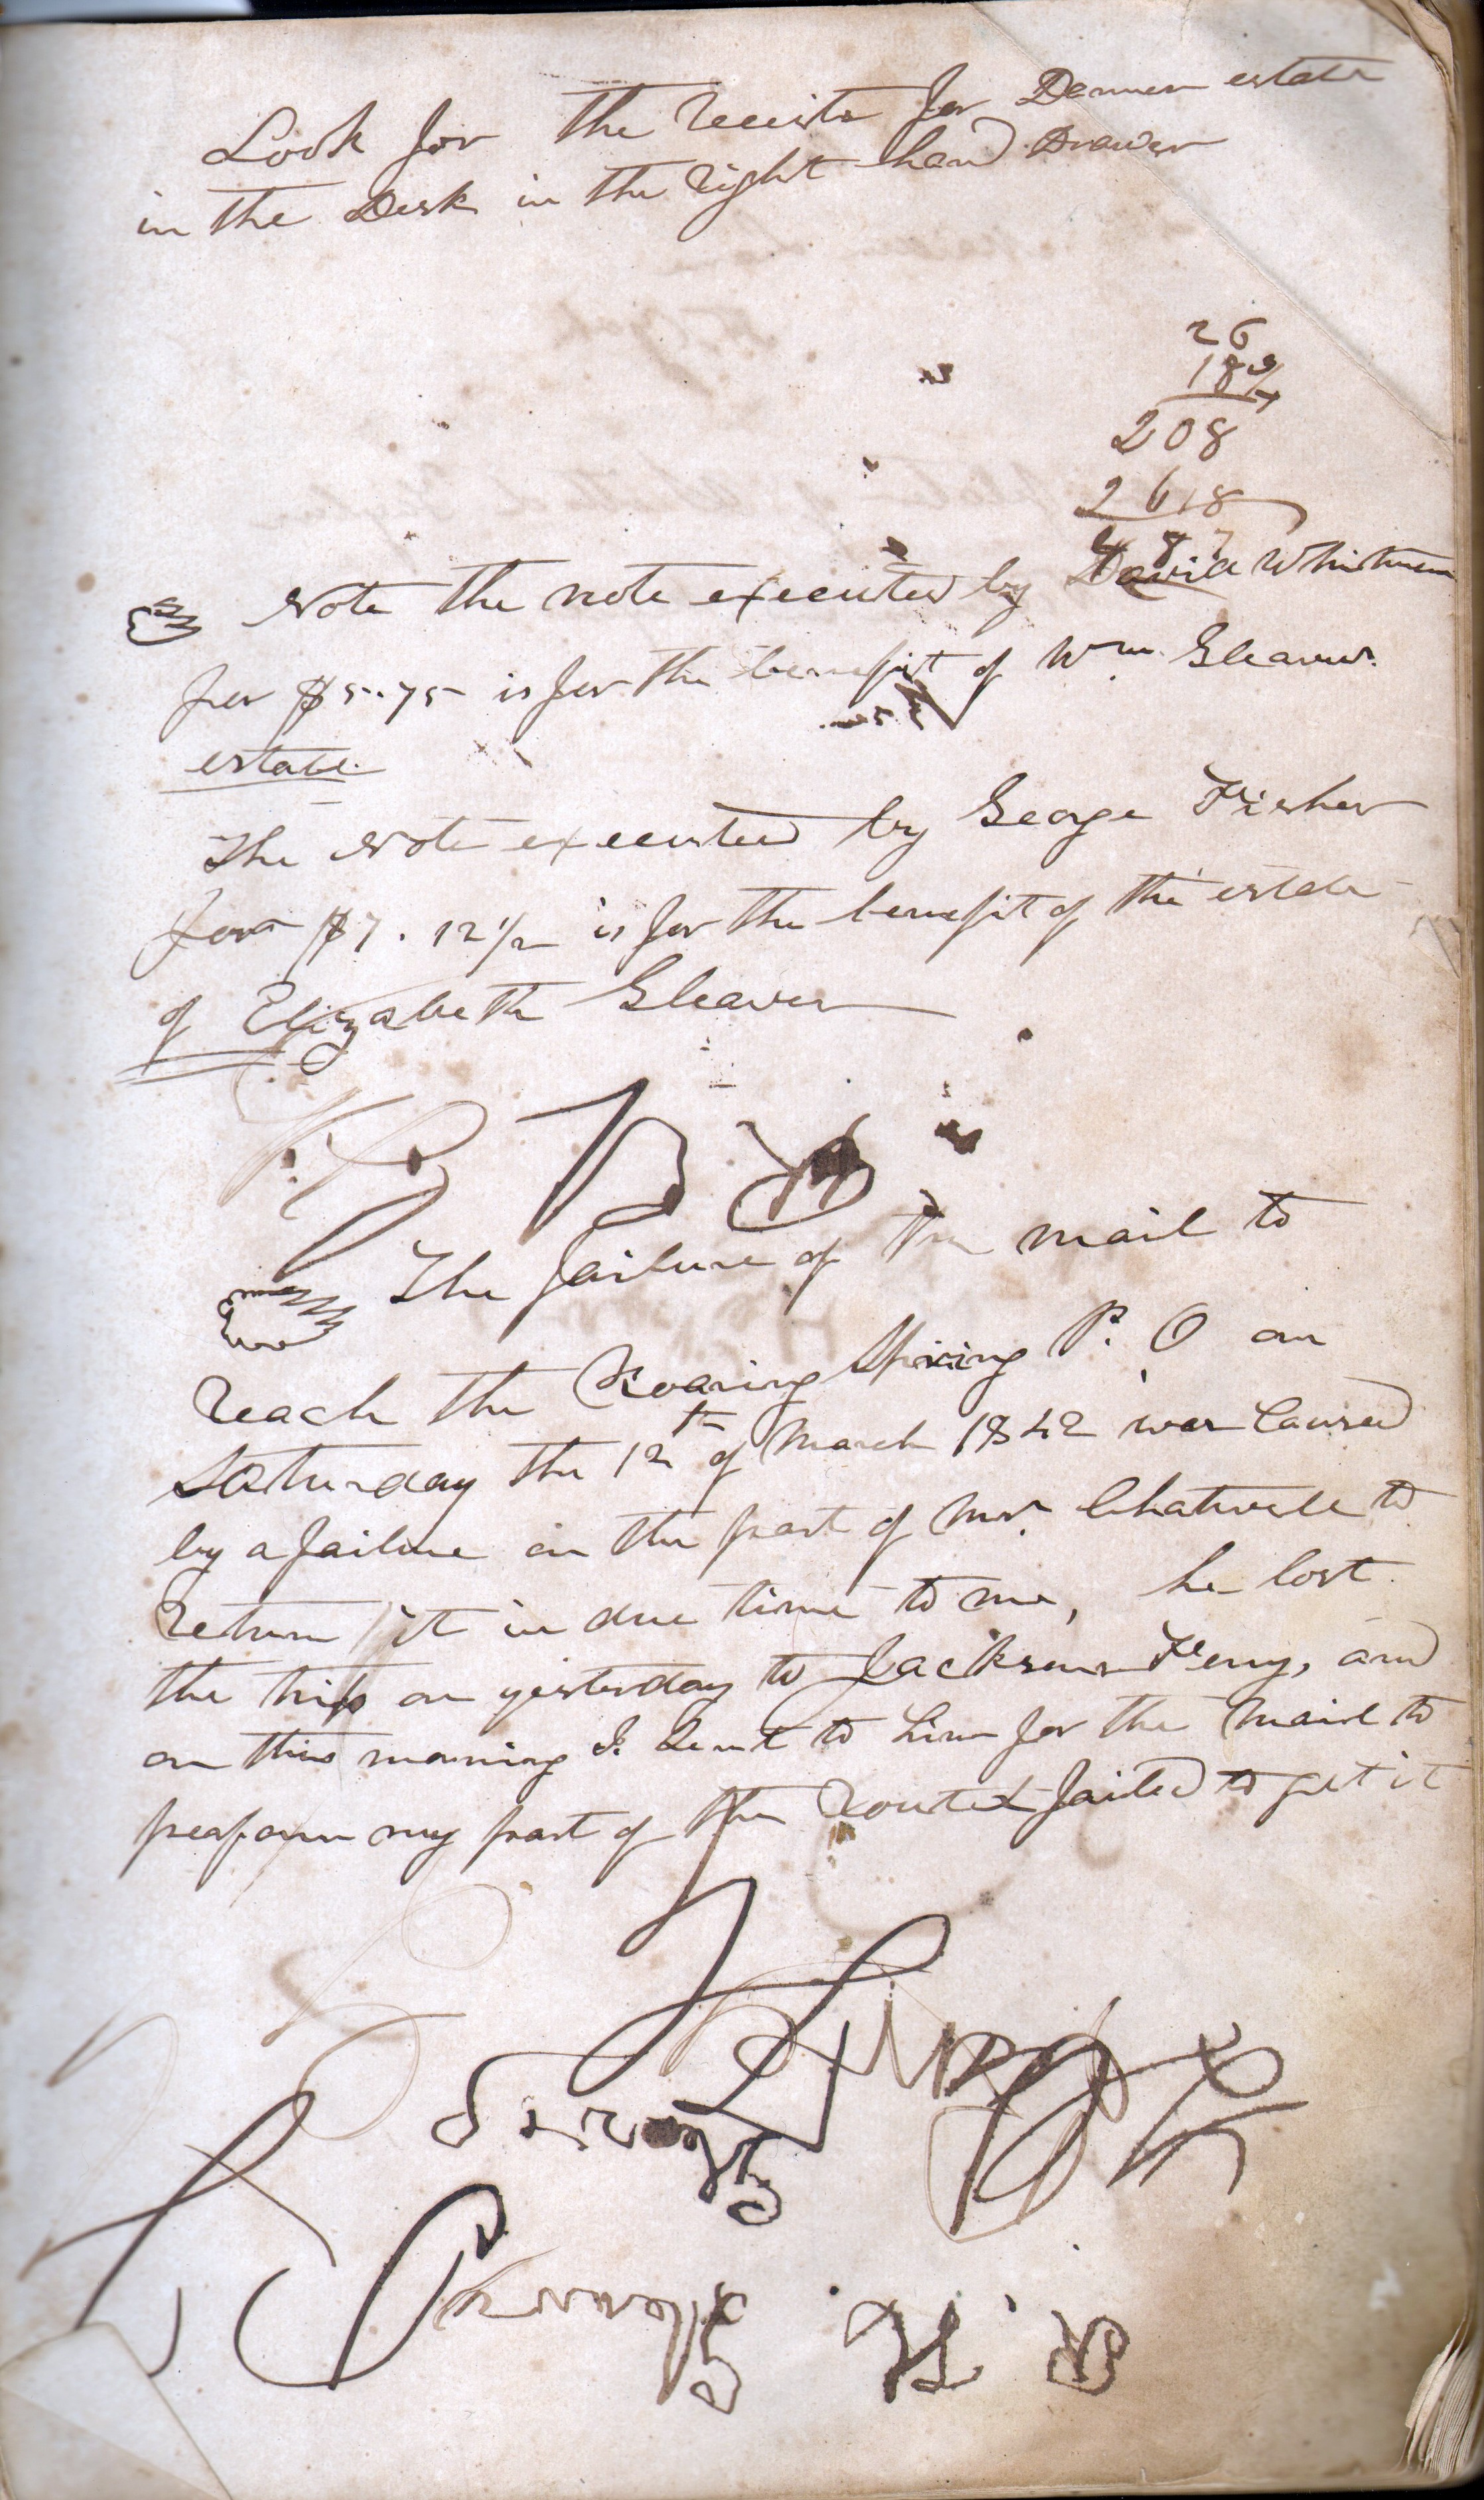 Look for the receits for Denmen estate
in the Desk in the right hand Drawer
26
18 3/4
208
2618
487
Note the note executed by David Whitman
for $5.75 is for the benefit of Wm. Gleaves
estate
The Note executed by George Fisher
for $7.12 1/2 is for the benefit of the estate
of Elizabeth Gleaves
The failure of the mail to
reach the Roaring Spring P. O on
Saturday the 12th of March 1842 was Caused
by a failure on the part of Mr. Chatwell to
return it in due time to me, he lost
the trip on yesterday to Jacksons Ferry, and
on this morning I Sent to him for the Mail to
peaform my part of the Route & failed to get it
R. H. Gleaves